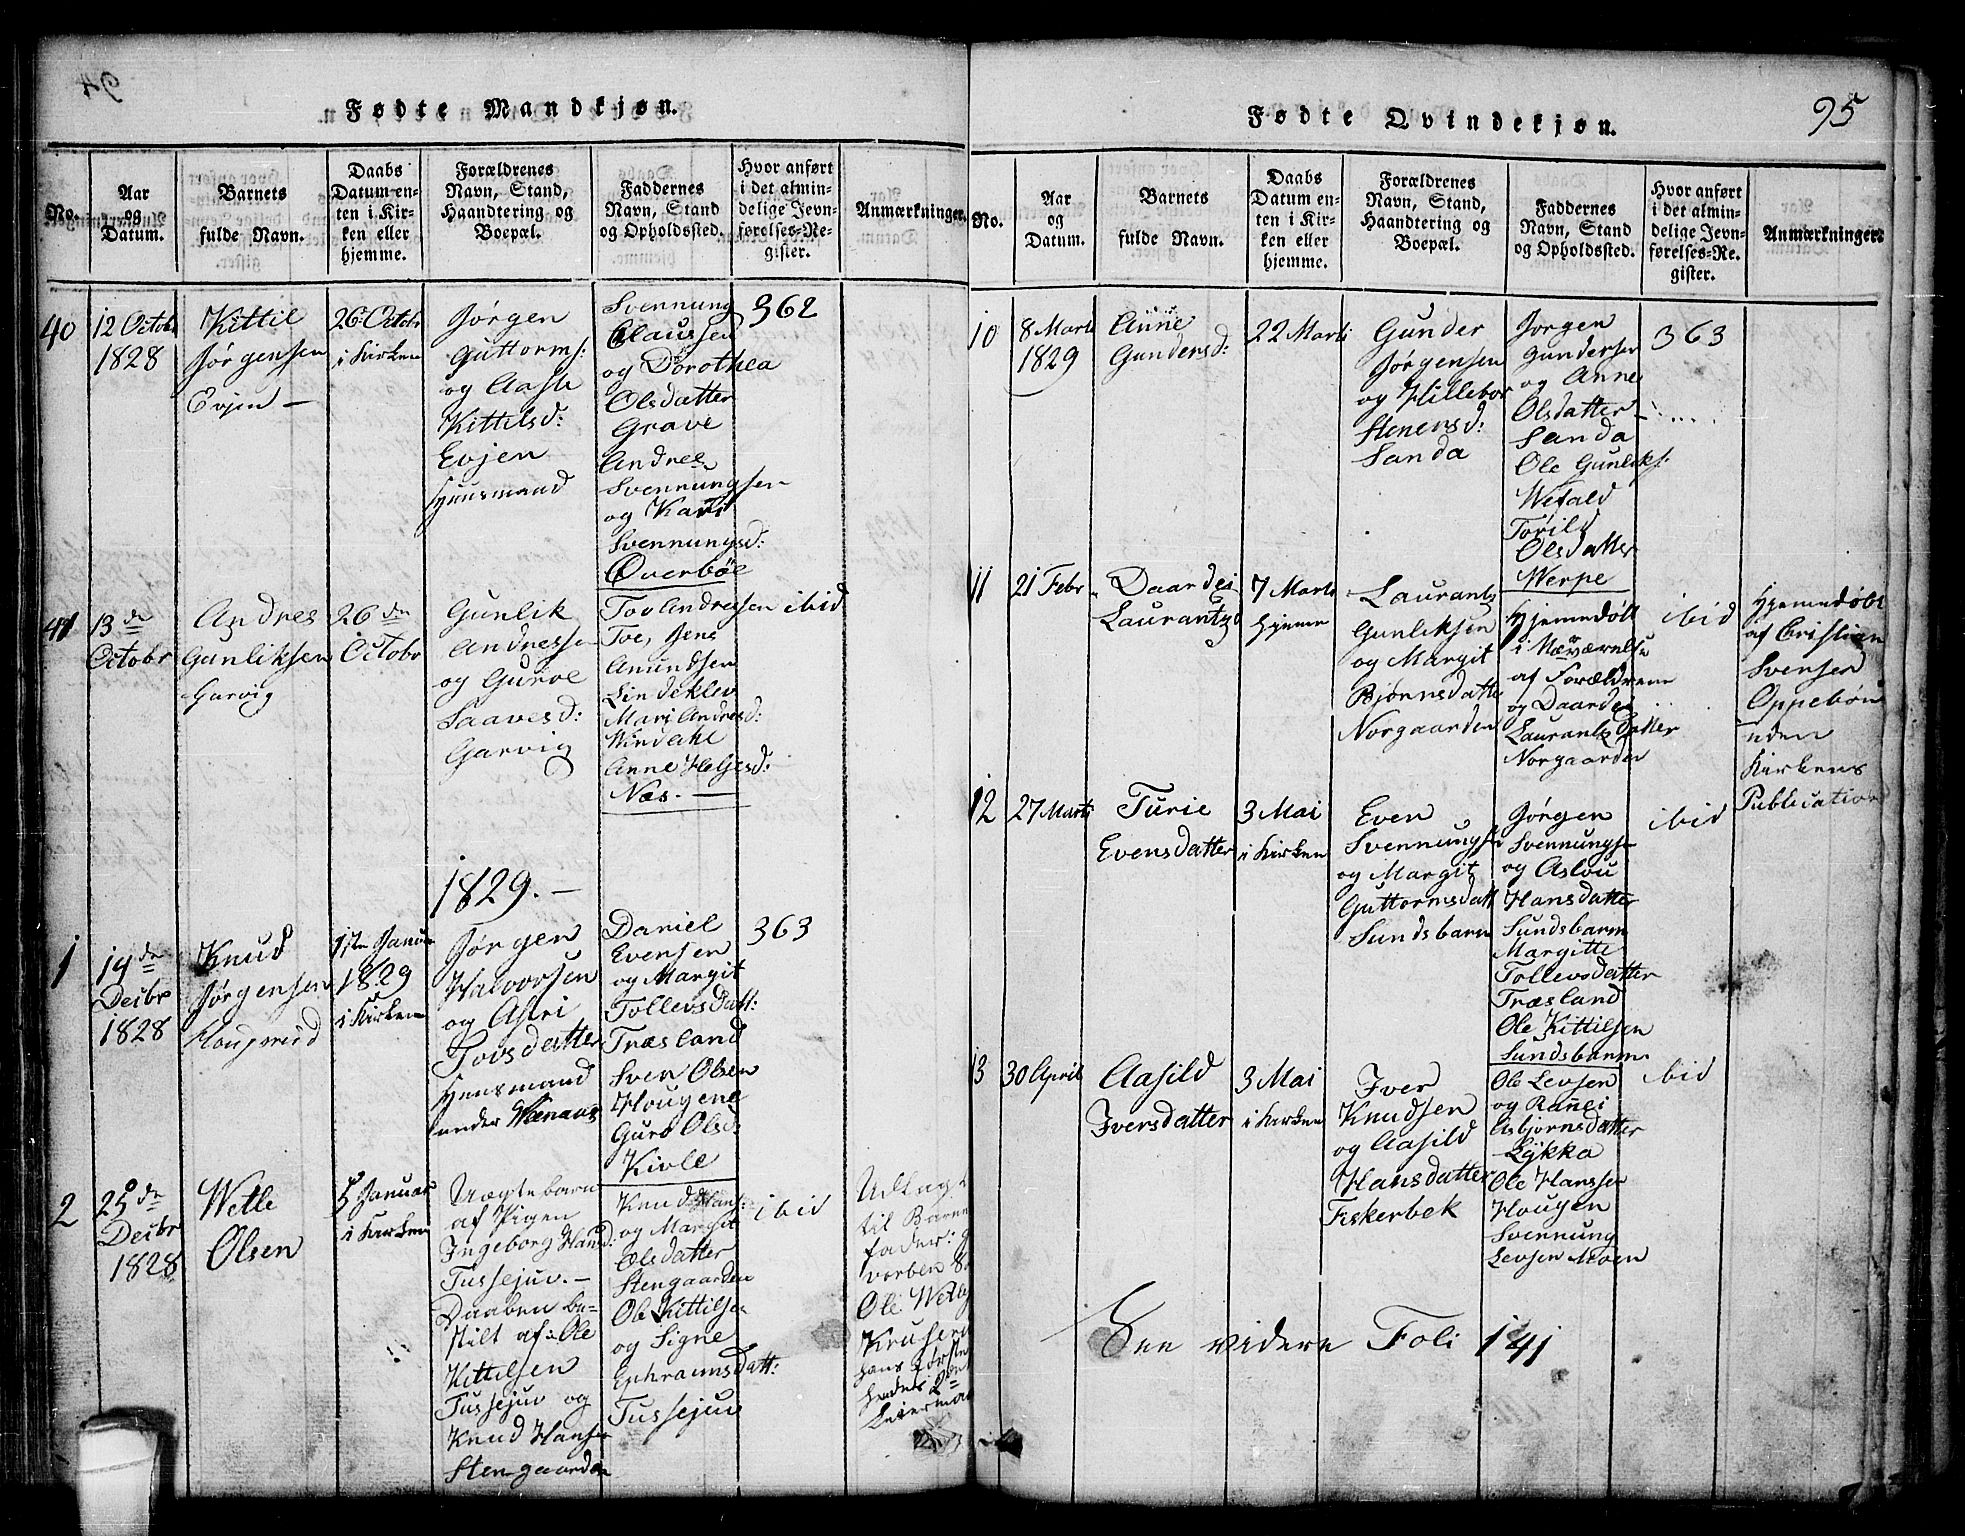 94
Fødte Mandkjøn.
No.
Aar
og
Datum.
Barnets
fulde Navn.
Daabs
Datum en-
ten i Kir-
ken eller
hjemme.
Forældrenes
Navn, Stand,
Haandtering og
Boepæl.
Faddernes
Navn, Stand
og Opholdssted.
Hvor anført
i det almin-
delige Jevn-
førelses-Re-
gister.
Anmærkninger.
40
12 Octobr
1828
Kittil
Jörgensen
Evjen —
26 Octobr
i Kirken
Jörgen
Guttorms:
og Aaste
Kittilsd:
Evjen
Huusmand
Svennung
Claussen
og Dorothea
Olsdatter
Grave
Andres
Svennungsen
og Kari
Svennungsd:
Överböe
362
41
13 de
Octobr
Andres
Gunliksen
Garvig
26 de
Octobr
Gunlik
Andressen
og Guroe
Saavesd:
Garvig
Tov Andressen
Tve, Jens
Amundsen
Lindeklev
Mari Andresd:
Windahl
Anne Heljesd:
Næs. —
ibid
1829. —
1
19 de
Decbr
1828
Knud
Jörgensen
Haugerud
1ste Januar
1829
i Kirken
Jörgen
Halvorsen
og Astri
Tovsdatter
Huusmand
under
Daniel
Evensen
og Margit
Tollevsdatt:
Træsland
Sven Olsen
Hougene
Guro Olsd:
Kivle
363
2
25 de
Decbr
1828
Wetle
Olsen
5 Januar
i Kirken
Uægte barn
af Pigen
Ingeborg Hansd:
Tussejuv. —
Daaben be-
stilt af: Ole
Kittilsen
Tussejuv og
Knud Hansen
Stengaarden
Knud Hans:
og Margit
Olsdatter
Stengaarden
Ole Kittilsen
og Signe
Ephraimsdatt:
Tussejuv
ibid
Udlagt
til Barne
fader:
Ole
hans förste
hendes 2
Leiermaal
95
Fødte Qvindekjøn.
No.
Aar
og
Datum.
Barnets
fulde Navn.
Daabs
Datum en-
ten i Kir-
ken eller
hjemme.
Forældrenes
Navn, Stand,
Haandtering og
Boepæl.
Faddernes
Navn, Stand
og Opholdssted.
Hvor anført
i det almin-
delige Jevn-
førelses-Re-
gister.
Anmærkninger.
10
8 Marti
1829
Anne
Gundersd:
22 Marti
Gunder
Jörgensen
og Hillebor
Stenersd:
Sanda
Jörgen
Gundersen
og Anne
Olsdatter
Sanda
Ole Gunliks:
Wefald
Torild
Olsdatter
Werpe
363
11
21 Febr
Daardei
Laurantzd
7 Marti
hjeme
Laurantz
Gunliksen
og Margit
Björnsdatter
Norgaarden
Hjemedöbt
i Nærværelse
af Forældrene
og Daardei
Laurantzdatter
Norgaarden
ibid
Hjemmedöbt
af Cristian
Svensen
Oppebön
uden
Kirkens
Publication
12
27 Marti
Turie
Evensdatter
3 Mai
i Kirken
Even
Svennungs
og Margit
Guttormsdatt
Sundsbarm
Jörgen
Svennungsen
og Aslou
Hansdatter
Sundsbarm
Margitte
Tollevsdatter
Træsland
Ole Kittilsen
Sundsbarm
ibid
13
30 April
Aasild
Iversdatter
3 Mai
i Kirken
Iver
Knudsen
og Aasild
Hansdatter
Fiskerbek
Ole Levsen
og Rannei
Asbjörnsdatter
Lykka
Ole Hanssen
Hougen
Svennung
Levsen Moen
ibid
See videre Foli 141